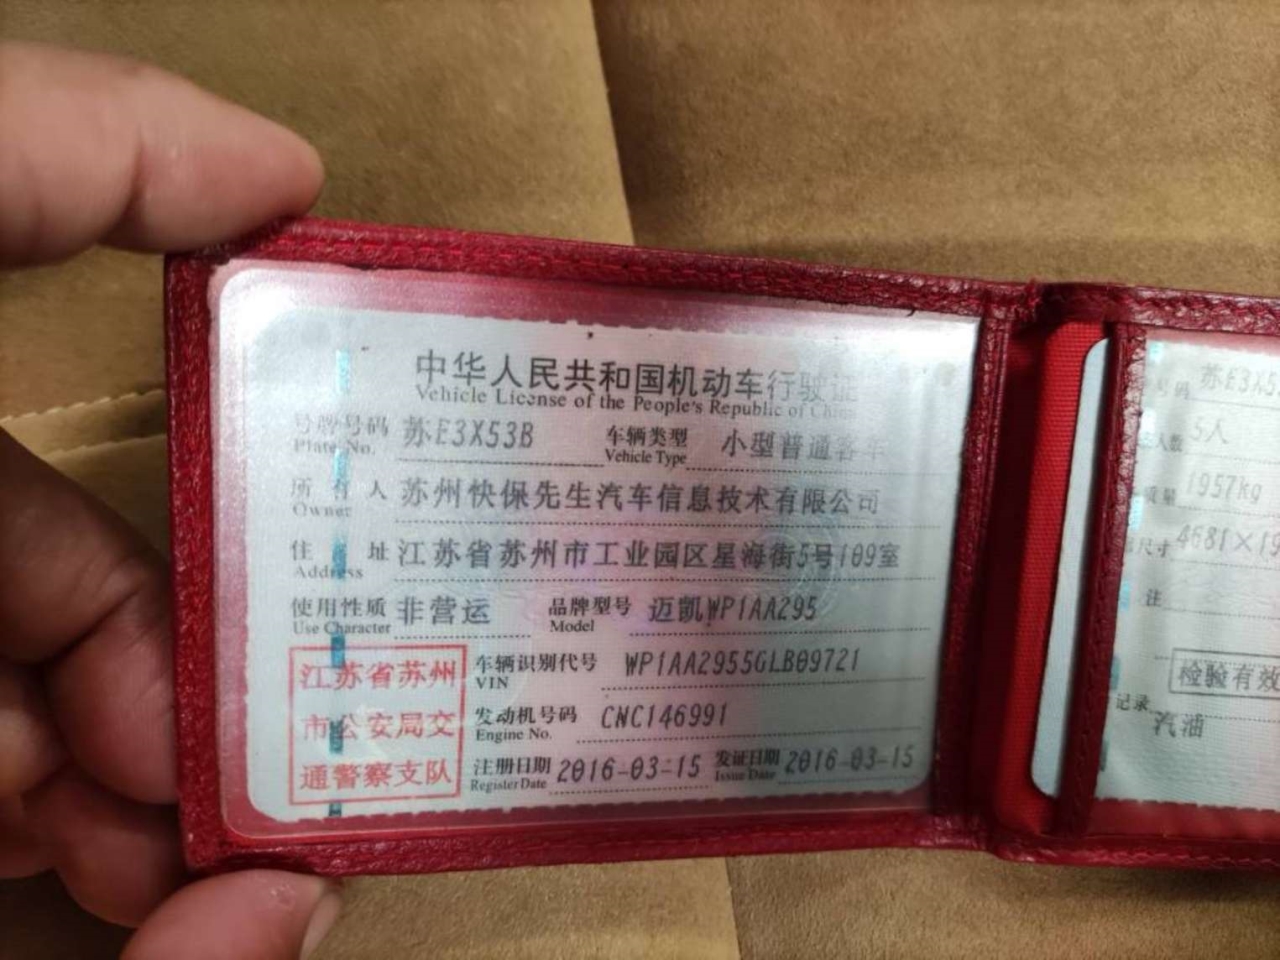 中华人民共和国机动车行驶证
Vehicle License of the People's Republic of China
号牌号码 苏E3X53B 车辆类型 小型普通客车
Plate No. Vehicle Type
所有人 苏州快保先生汽车信息技术有限公司
Owner
住址 江苏省苏州市工业园区星海街5号109室
Address
使用性质 非营运 品牌型号 迈凯WP1AA295
Use Character Model
江苏省苏州
市公安局交
通警察支队
车辆识别代号 WP1AA2955GLB09721
VIN
发动机号码 CNC146991
Engine No.
注册日期 2016-03-15 发证日期 2016-03-15
Register Date Issue Date
号码 苏E3X5
人数 5人
质量 1957kg
尺寸 4681×19
注
检验有效
记录
汽油